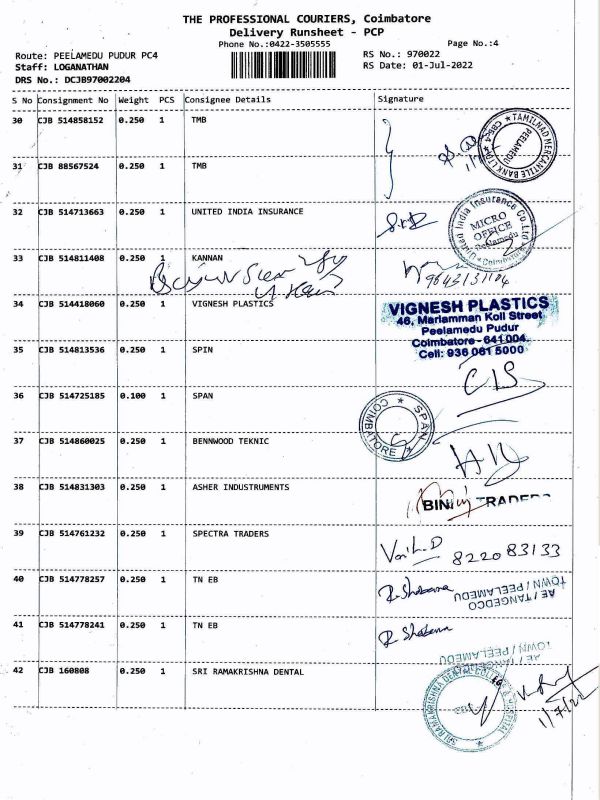 THE PROFESSIONAL COURIERS, Coimbatore
Delivery Runsheet - PCP
Phone No.:0422-3505555
Page No.:4
Route: PEELAMEDU PUDUR PC4
RS No.: 970022
Staff: LOGANATHAN
RS Date: 01-Jul-2022
DRS No.: DCJB97002204
S No Consignment No Weight PCS Consignee Details Signature
30 CJB 514858152 0.250 1 TMB
TAMILNAD MERCANTILE BANK LTD
PEELAMEDU
31 CJB 88567524 0.250 1 TMB
32 CJB 514713663 0.250 1 UNITED INDIA INSURANCE
United India Insurance Co.Ltd
MICRO
OFFICE
Peelamedu
Coimbatore
33 CJB 514811408 0.250 1 KANNAN
34 CJB 514418060 0.250 1 VIGNESH PLASTICS
VIGNESH PLASTICS
46, Mariamman Koil Street
Peelamedu Pudur
Coimbatore - 641 004.
Cell: 936 061 5000
35 CJB 514813536 0.250 1 SPIN
36 CJB 514725185 0.100 1 SPAN
SPAN
COIMBATORE
37 CJB 514860025 0.250 1 BENNWOOD TEKNIC
38 CJB 514831303 0.250 1 ASHER INDUSTRUMENTS
TRADERS
39 CJB 514761232 0.250 1 SPECTRA TRADERS
8220 83133
40 CJB 514778257 0.250 1 TN EB
AE / TANGEDCO
TOWN / PEELAMEDU
41 CJB 514778241 0.250 1 TN EB
AE / TANGEDCO
TOWN / PEELAMEDU
42 CJB 160808 0.250 1 SRI RAMAKRISHNA DENTAL
SRI RAMAKRISHNA DENTAL COLLEGE & HOSPITAL
1/7/22